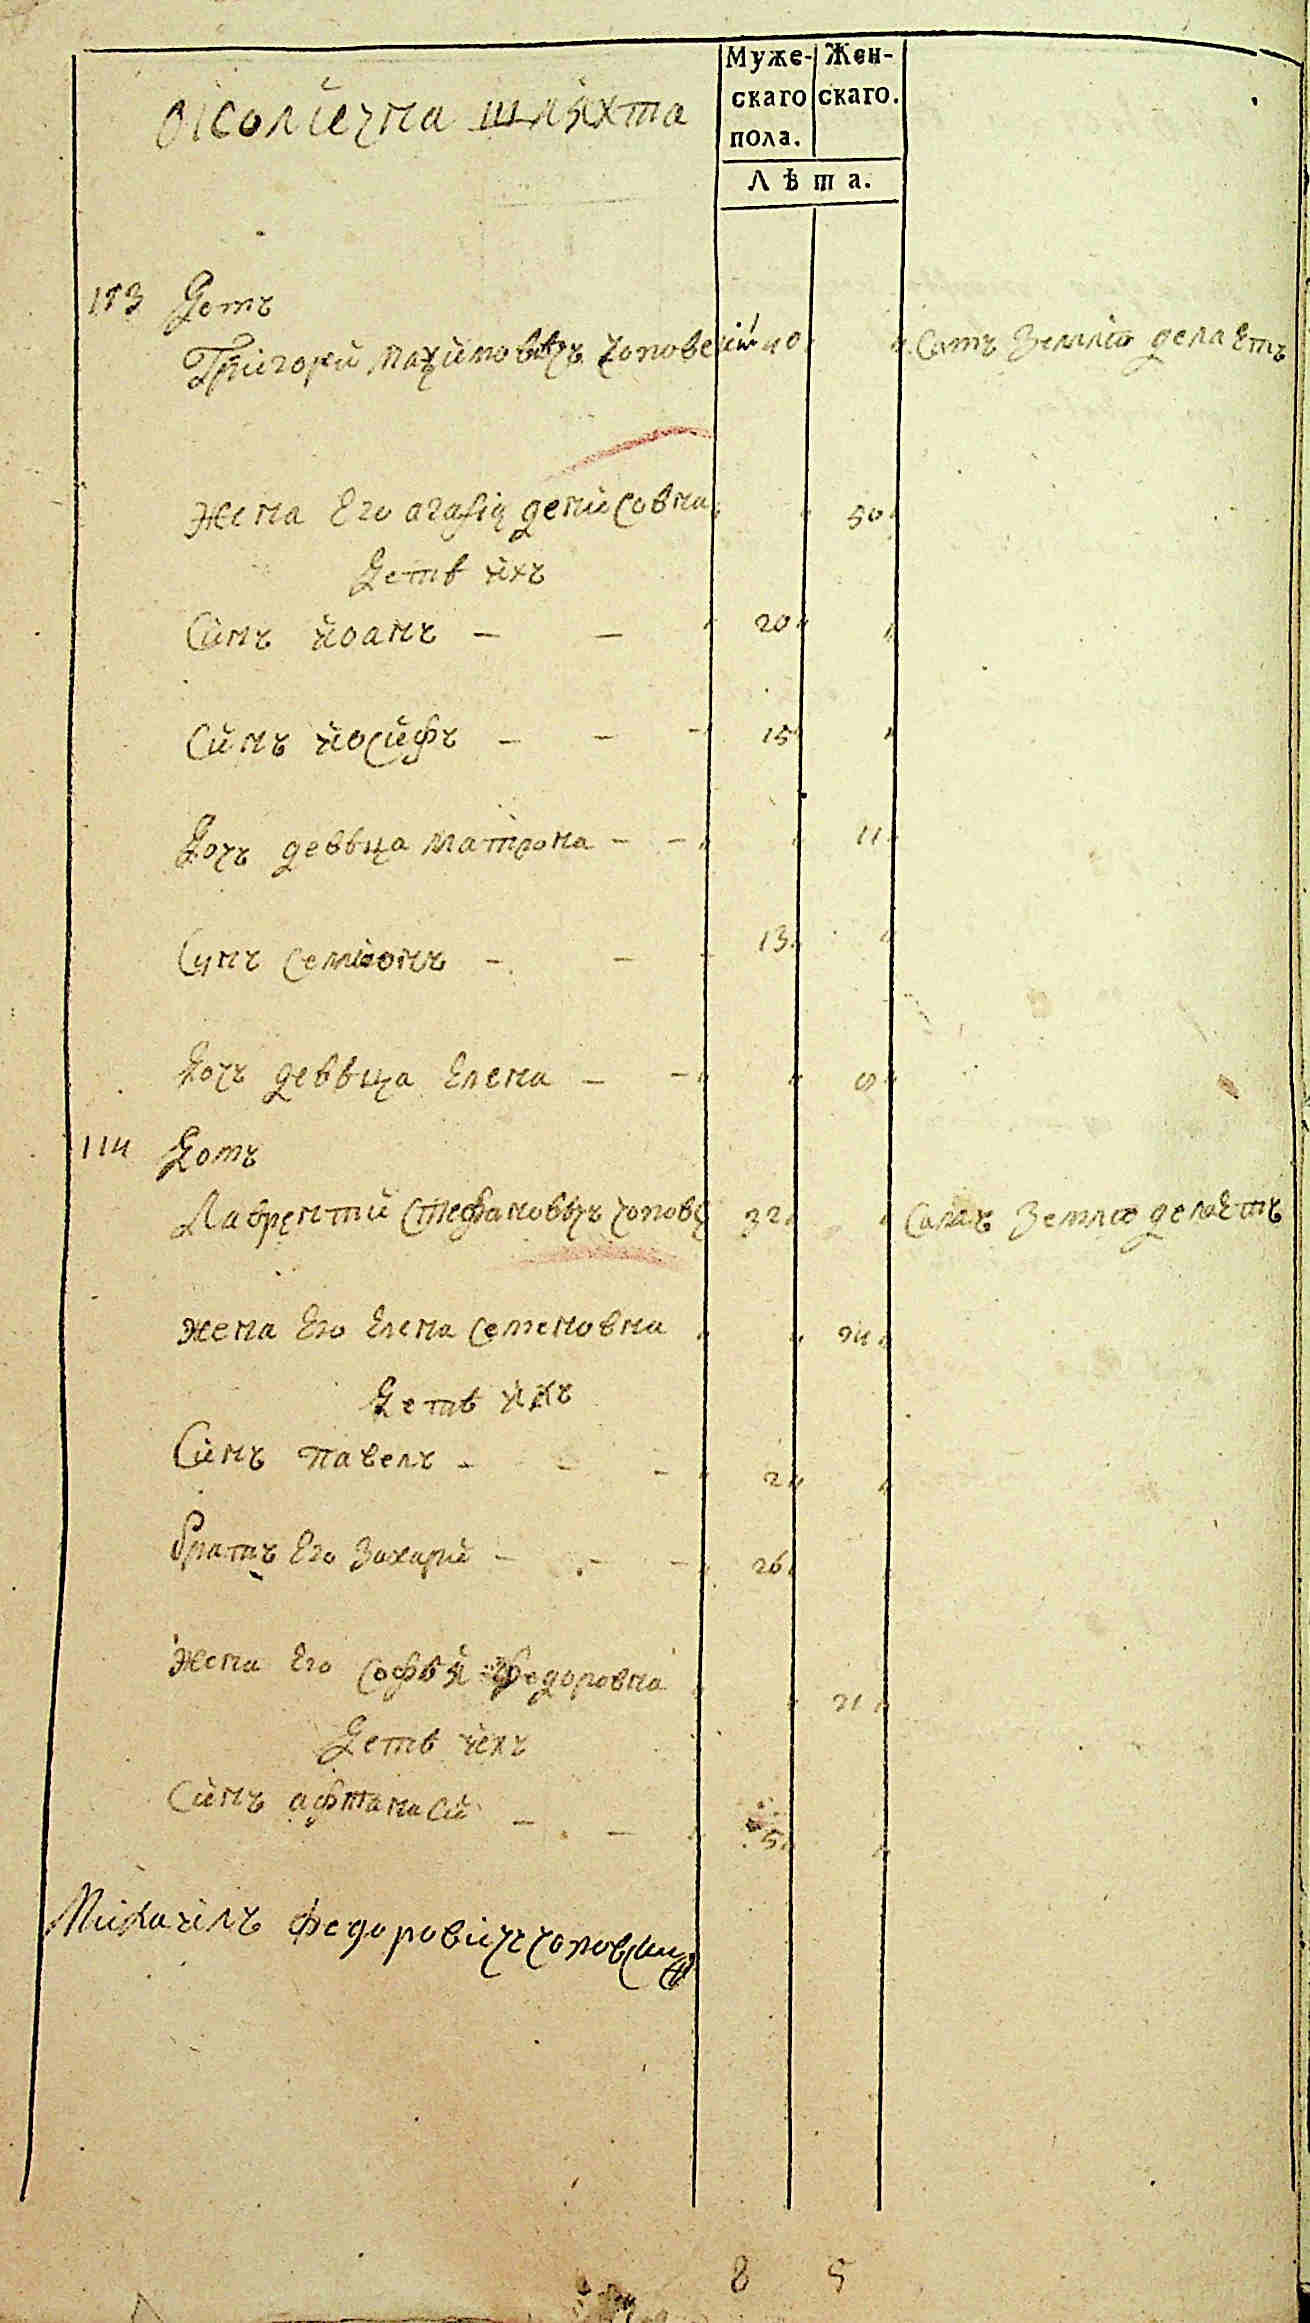 Муже- Жен-
скаго скаго.
пола.
Лѣта.
околична шляхта
113 Домъ
Григорий Махимовичъ Чоповский 40 Самъ Землю делаетъ
жена Его агафия денисовна 50
Дети ихъ
Синъ йоанъ — — 20
Синъ йосифъ — — 15
Дочъ девица Матрона — — 11
Сунъ Семионъ — — 13
Дочъ девица Елена — — 9
114 Домъ
Лаврентий Стефановичъ Чоповс 32 Самъ Землю делаетъ
жена Его Елена Семеновна 24
Дети ихъ
Синъ Павелъ — — 2
братъ Его Захарий — — 26
жена Его Софѣя Федоровна 21
Дети ихъ
Синъ афтанасий — — 5
Михаилъ Федоровичъ Чоповский
8 5